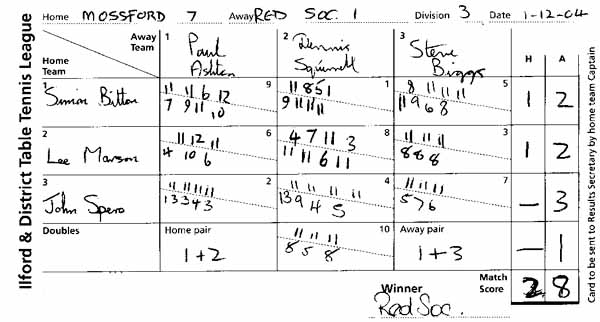 Home MOSSFORD 7 Away RED SOC. 1 Division 3 Date 1-12-04
Ilford & District Table Tennis League
Away Team
Home Team
1 Paul Ashton
2 Dennis Squirrell
3 Steve Biggs
H A
1 Simon Bitton
11 11 6 12 9
7 9 11 10
11 8 5 1 1
9 11 11 11
8 11 11 11 5
11 9 6 8
1 2
2 Lee Marson
11 12 11 6
4 10 6
4 7 11 3 8
11 11 6 11
11 11 11 3
8 8 8
1 2
3 John Spero
2
13 3 4 3
4
13 9 4 5
11 11 11 7
5 7 6
– 3
Doubles
Home pair
1+2
11 11 11 10
8 5 8
Away pair
1+3
– 1
Winner Red Soc.
Match Score 2 8
Card to be sent to Results Secretary by home team Captain